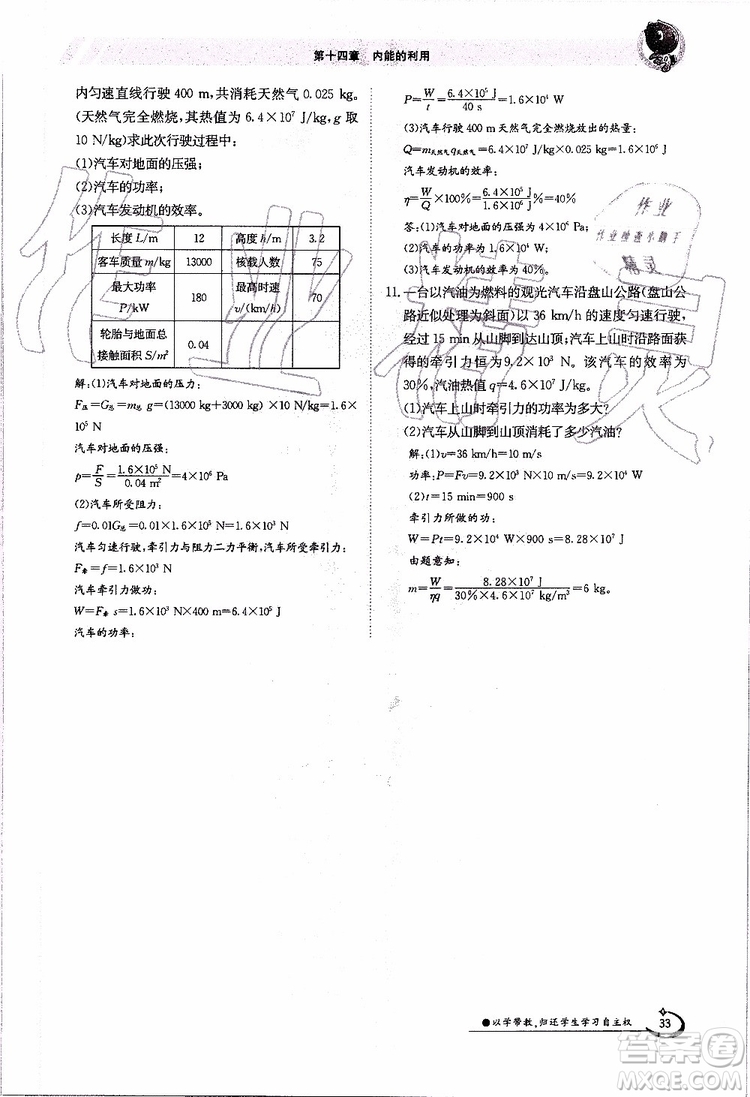 第十四章 内能的利用
内匀速直线行驶 400 m，共消耗天然气 0.025 kg。
(天然气完全燃烧，其热值为 6.4×10⁷ J/kg，g 取
10 N/kg)求此次行驶过程中：
(1)汽车对地面的压强；
(2)汽车的功率；
(3)汽车发动机的效率。
长度 L/m 12 高度 h/m 3.2
客车质量 m/kg 13000 核载人数 75
最大功率 P/kW 180 最高时速 v/(km/h) 70
轮胎与地面总接触面积 S/m² 0.04
解：(1)汽车对地面的压力：
F压=G总=m总 g=(13000 kg+3000 kg)×10 N/kg=1.6×
10⁵ N
汽车对地面的压强：
p=F/S=1.6×10⁵ N/0.04 m²=4×10⁶ Pa
(2)汽车所受阻力：
f=0.01G总=0.01×1.6×10⁵ N=1.6×10³ N
汽车匀速行驶，牵引力与阻力二力平衡，汽车所受牵引力：
F牵=f=1.6×10³ N
汽车牵引力做功：
W=F牵 s=1.6×10³ N×400 m=6.4×10⁵ J
汽车的功率：
P=W/t=6.4×10⁵ J/40 s=1.6×10⁴ W
(3)汽车行驶 400 m天然气完全燃烧放出的热量：
Q=m天然气q天然气=6.4×10⁷ J/kg×0.025 kg=1.6×10⁶ J
汽车发动机的效率：
η=W/Q×100%=6.4×10⁵ J/1.6×10⁶ J×100%=40%
答：(1)汽车对地面的压强为 4×10⁶ Pa。
(2)汽车的功率为 1.6×10⁴ W。
(3)汽车发动机的效率为 40%。
11. 一台以汽油为燃料的观光汽车沿盘山公路(盘山公
路近似处理为斜面)以 36 km/h 的速度匀速行驶，
经过 15 min 从山脚到达山顶；汽车上山时沿路面获
得的牵引力恒为 9.2×10³ N。该汽车的效率为
30%，汽油热值 q=4.6×10⁷ J/kg。
(1)汽车上山时牵引力的功率为多大？
(2)汽车从山脚到山顶消耗了多少汽油？
解：(1)v=36 km/h=10 m/s
功率：P=Fv=9.2×10³ N×10 m/s=9.2×10⁴ W
(2)t=15 min=900 s
牵引力所做的功：
W=Pt=9.2×10⁴ W×900 s=8.28×10⁷ J
由题意知：
m=W/ηq=8.28×10⁷ J/30%×4.6×10⁷ kg/m³=6 kg
作业
精灵
作业精灵
●以学带教，归还学生学习自主权
33
答案圈
MXQE.COM